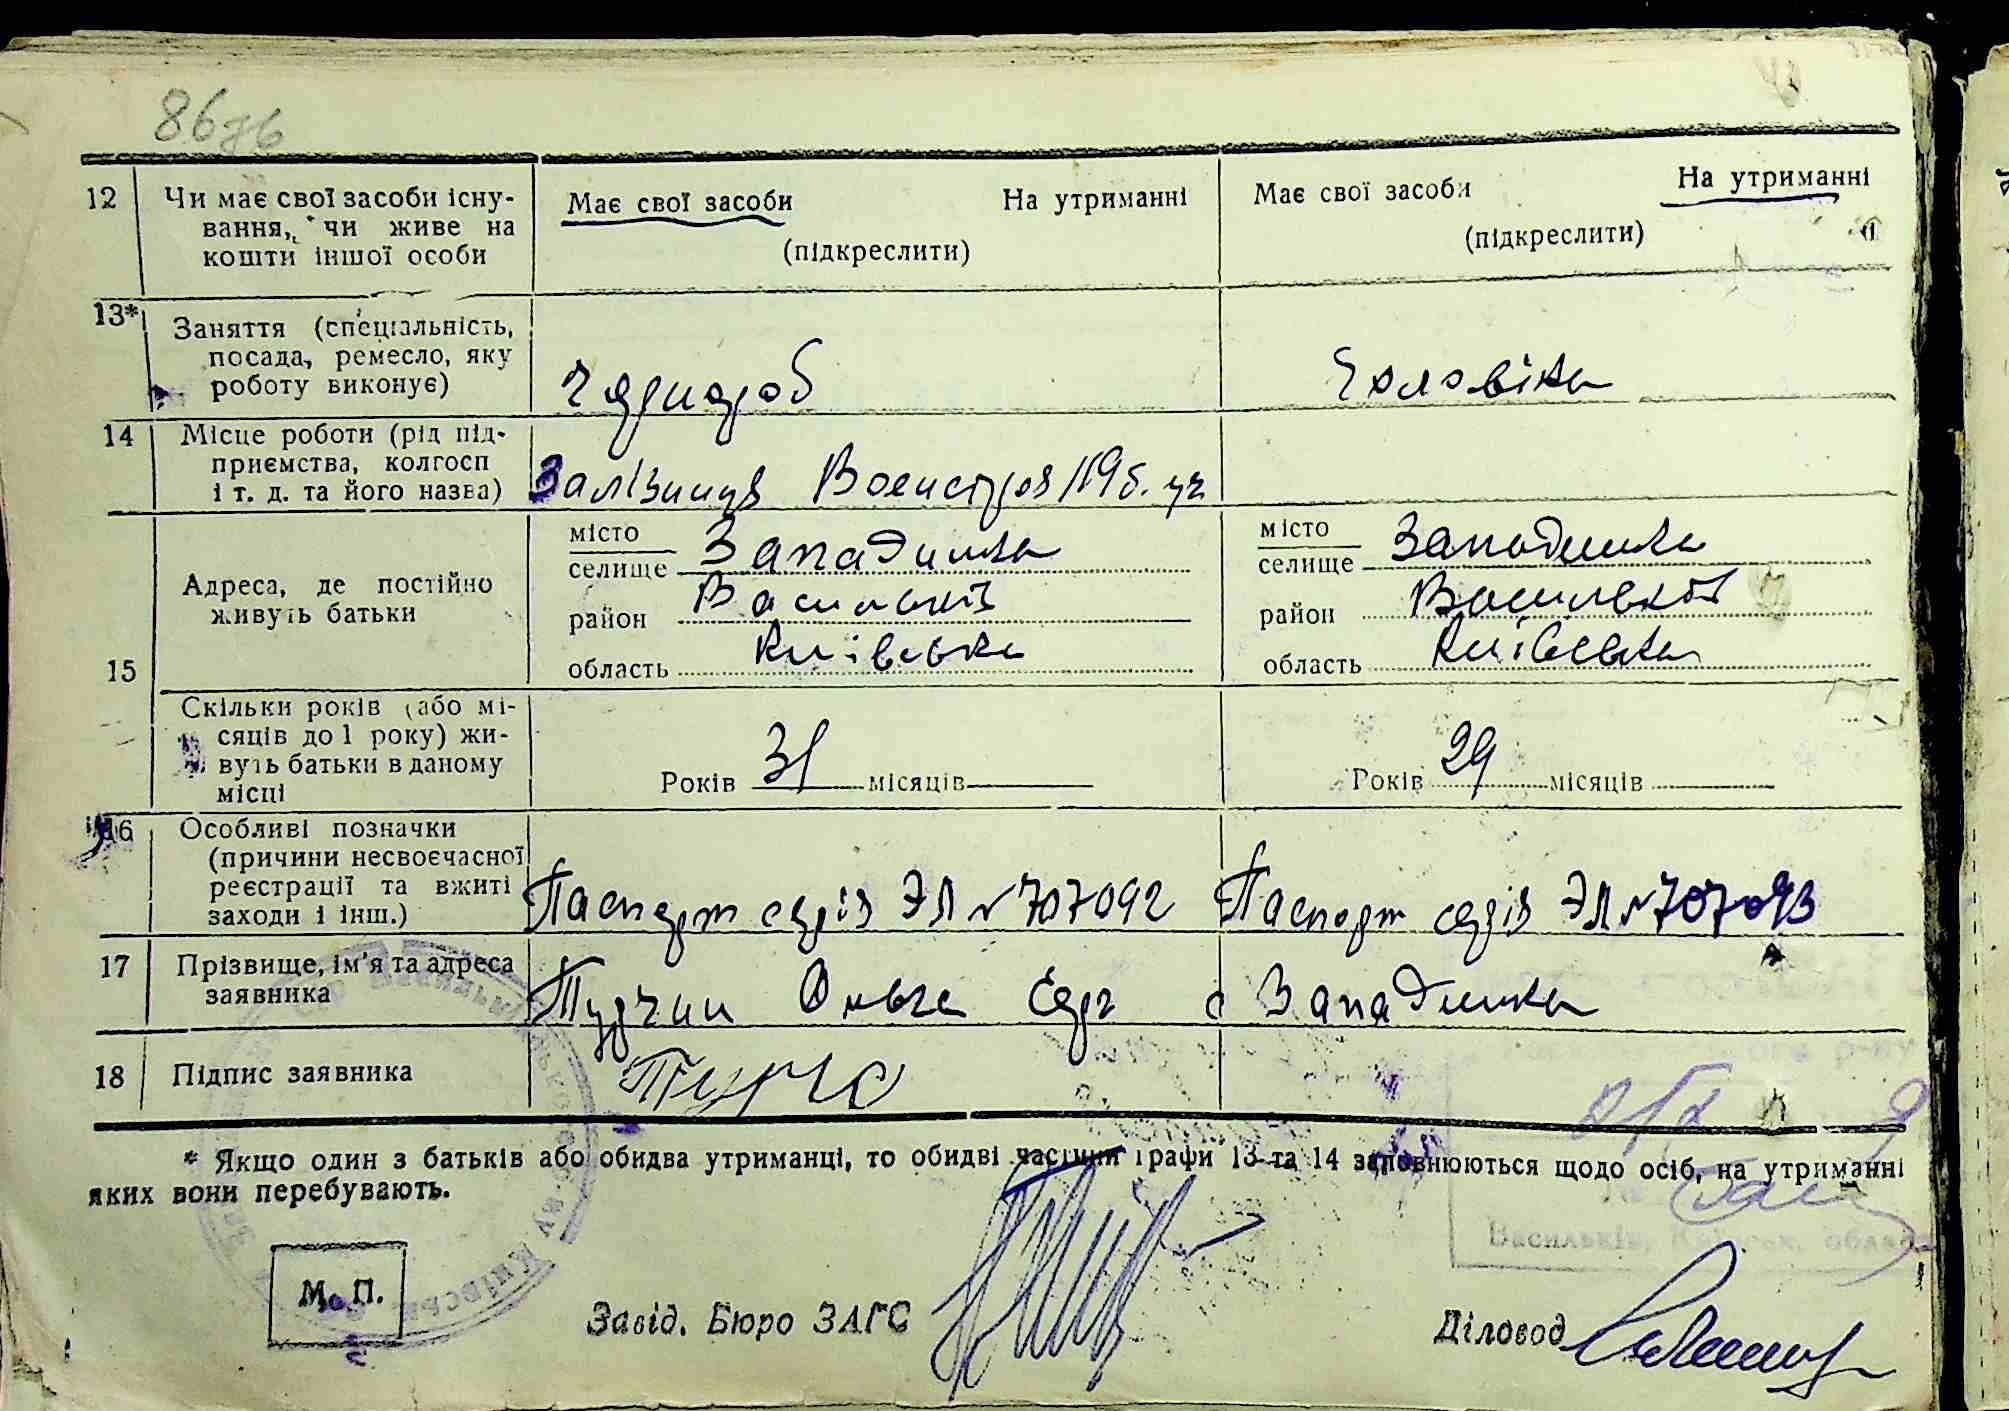 12 Чи має свої засоби існу-
вання, чи живе на
кошти іншої особи
Має свої засоби На утриманні
(підкреслити)
Має свої засоби На утриманні
(підкреслити)
13* Заняття (спеціальність,
посада, ремесло, яку
роботу виконує)
Чорнороб
Чоловіка
14 Місце роботи (рід під-
приємства, колгосп
і т. д. та його назва)
Залізниця
15 Адреса, де постійно
живуть батьки
місто
селище Западинка
район Васильків
область Київська
місто
селище Западинка
район Васильків
область Київська
Скільки років (або мі-
сяців до 1 року) жи-
вуть батьки в даному
місці
Років 31 місяців
Років 29 місяців
16 Особливі позначки
(причини несвоєчасної
реєстрації та вжиті
заходи і інш.)
Паспорт серія ЭЛ № 707092
Паспорт серія ЭЛ № 707093
17 Прізвище, ім'я та адреса
заявника
Турчин Ольга Серг с Западинка
18 Підпис заявника
* Якщо один з батьків або обидва утриманці, то обидві частини графи 13 та 14 заповнюються щодо осіб, на утриманні
яких вони перебувають.
М. П.
Завід. Бюро ЗАГС
Діловод